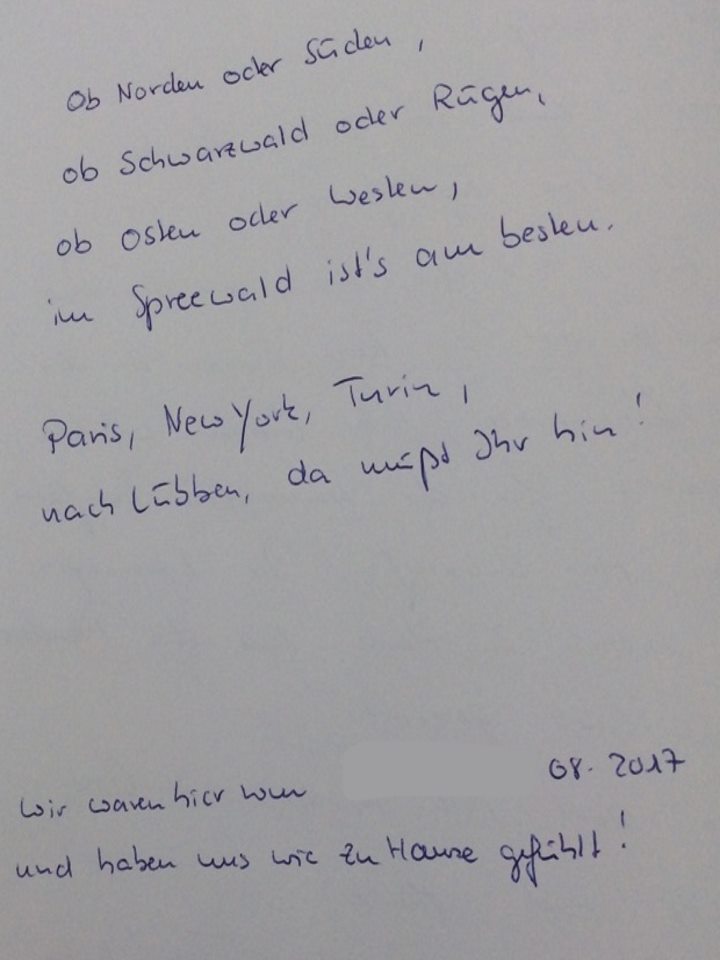 Ob Norden oder Süden,
ob Schwarzwald oder Rügen,
ob Osten oder Westen,
im Spreewald ist's am besten.
Paris, New York, Turin,
nach Lübben, da müßt Ihr hin!
Wir waren hier 08. 2017
und haben uns wie zu Hause gefühlt!